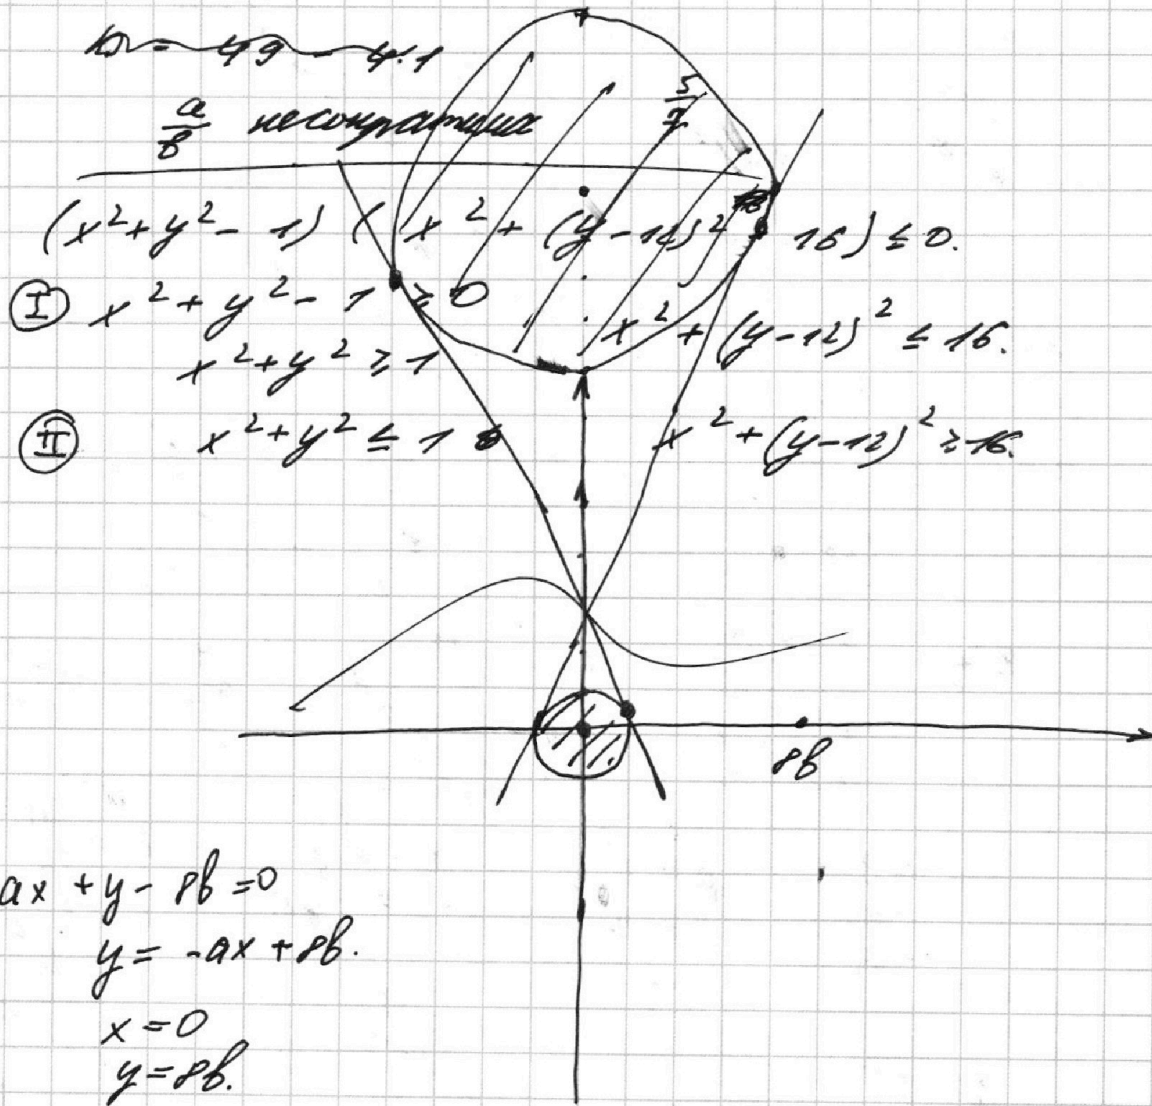 D = 49 - 4·1
a/b несократима
5/7
(x²+y²-1) (x²+(y-12)² 16) ≤ 0.
Ⓘ x²+y²-1 ≥ 0
x²+(y-12)² ≤ 16.
x²+y² ≥ 1
Ⓘ︎Ⓘ x²+y² ≤ 1
x²+(y-12)² ≥ 16.
8b
ax + y - 8b = 0
y = -ax + 8b.
x = 0
y = 8b.